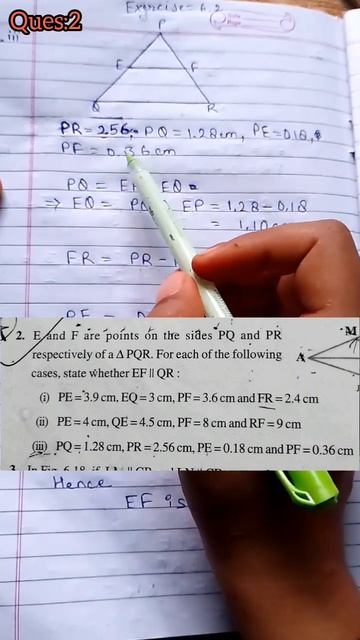 Ques:2
Exercise = 6.2
iii)
P
E
F
Q
R
PR = 256, PQ = 1.28cm, PE = 0.18,
PF = 0.36 cm
PQ = EQ
⇒ EQ = EP = 1.28 - 0.18
= 1.10
FR = PR -
2. E and F are points on the sides PQ and PR
respectively of a Δ PQR. For each of the following
cases, state whether EF || QR :
(i) PE = 3.9 cm, EQ = 3 cm, PF = 3.6 cm and FR = 2.4 cm
(ii) PE = 4 cm, QE = 4.5 cm, PF = 8 cm and RF = 9 cm
(iii) PQ = 1.28 cm, PR = 2.56 cm, PE = 0.18 cm and PF = 0.36 cm
M
A
Hence
EF is